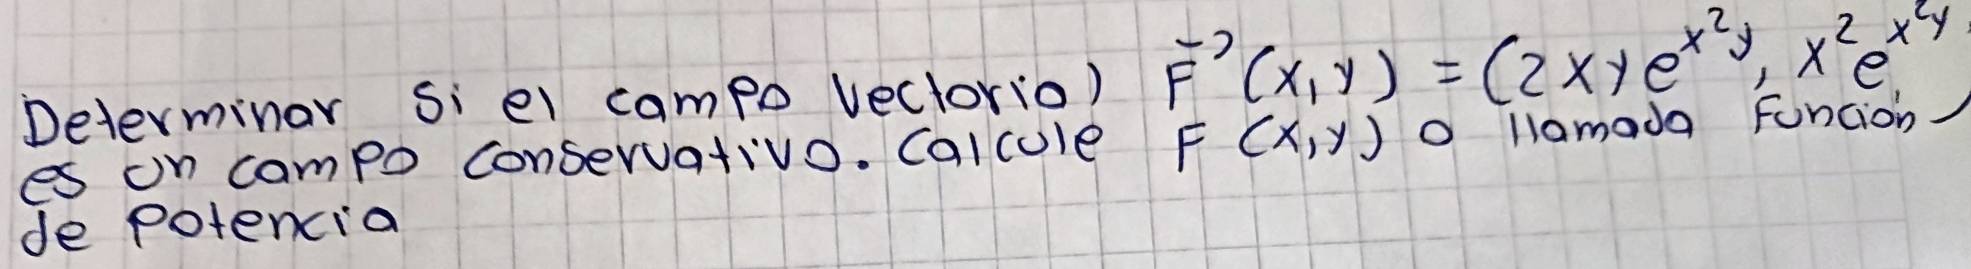 Determinar si el campo vectorial F⃗(x,y) = (2xye^{x²y}, x²e^{x²y})
es un campo conservativo. Calcule F(x,y) o llamada Función
de Potencia